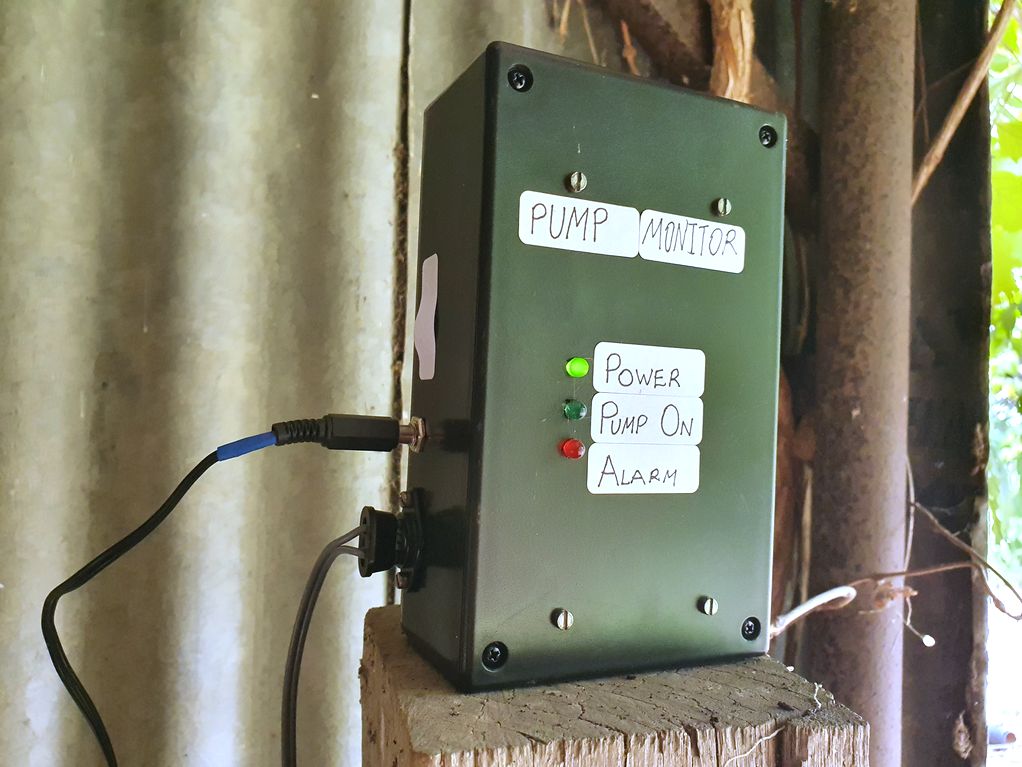 PUMP MONITOR
POWER
PUMP ON
ALARM